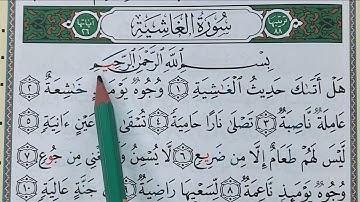 ترتيبها ٨٨ سُورَةُ الْغَاشِيَةِ آياتها ٢٦
بِسْمِ اللَّهِ الرَّحْمَٰنِ الرَّحِيمِ
هَلْ أَتَىٰكَ حَدِيثُ الْغَاشِيَةِ ۝١ وُجُوهٌ يَوْمَئِذٍ خَاشِعَةٌ ۝٢
عَامِلَةٌ نَاصِبَةٌ ۝٣ تَصْلَىٰ نَارًا حَامِيَةً ۝٤ تُسْقَىٰ عَيْنٍ آنِيَةٍ ۝٥
لَيْسَ لَهُمْ طَعَامٌ إِلَّا مِنْ ضَرِيعٍ ۝٦ لَا يُسْمِنُ مِنْ جُوعٍ ۝٧
وُجُوهٌ يَوْمَئِذٍ نَاعِمَةٌ ۝٨ لِسَعْيِهَا رَاضِيَةٌ ۝٩ جَنَّةٍ عَالِيَةٍ ۝١٠